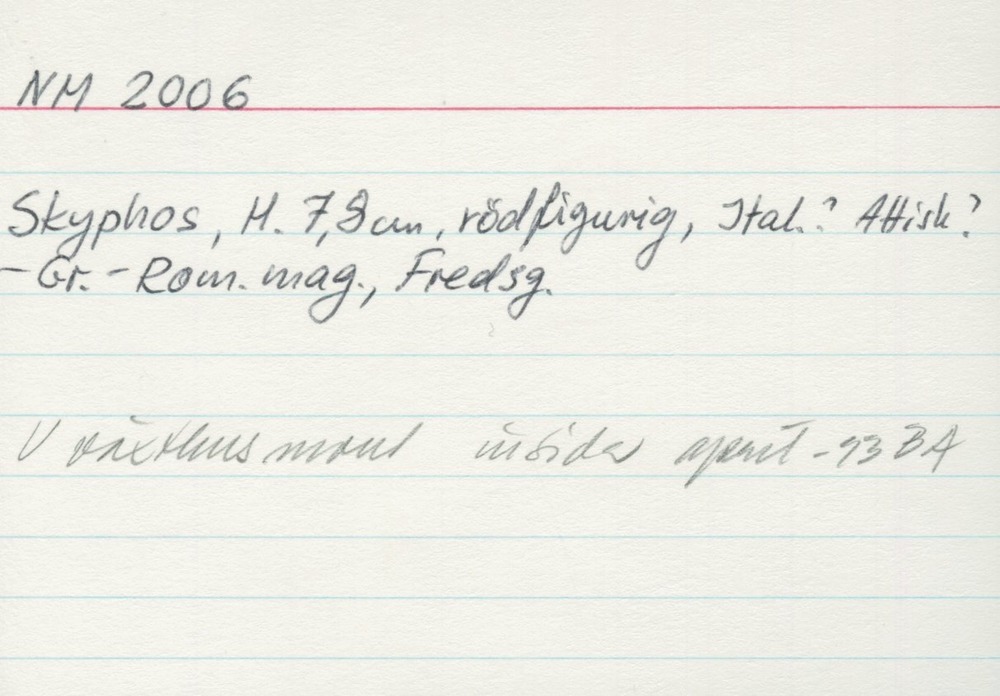 NM 2006
Skyphos, H. 7,8 cm, rödfigurig, Ital.? Attisk?
- Gr.- Rom. mag., Fredsg.
V växthus mont insidan april -93 BA